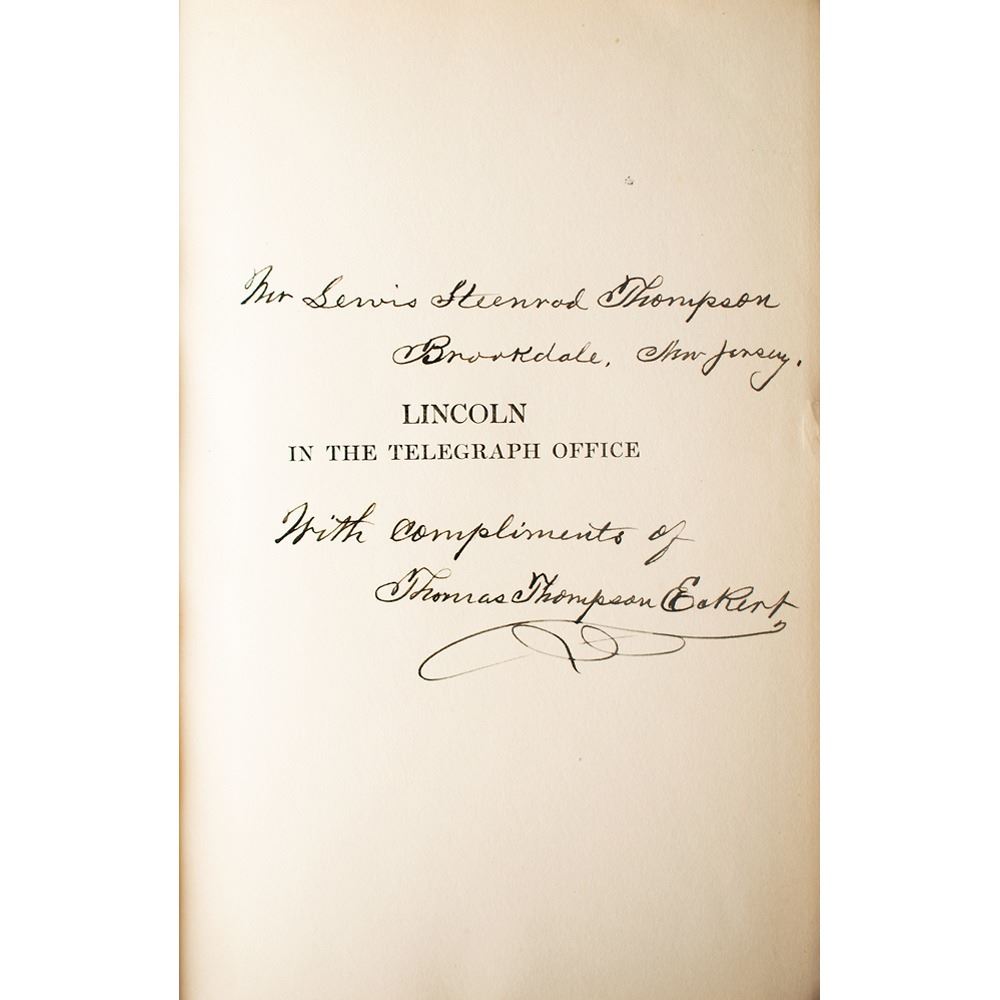 Mr Lewis Steenrod Thompson
Brookdale, New Jersey.
LINCOLN
IN THE TELEGRAPH OFFICE
With compliments of
Thomas Thompson Eckert